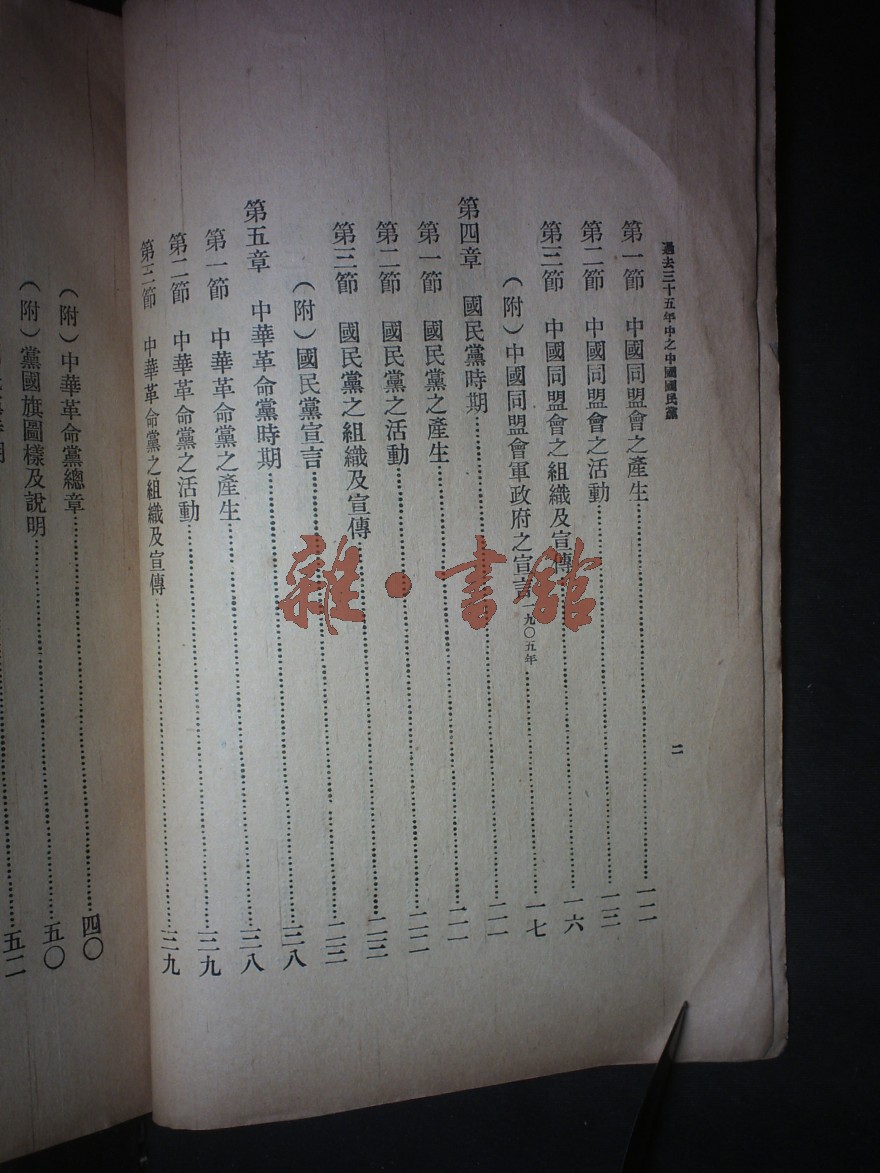 過去三十五年中之中國國民黨
二
第一節 中國同盟會之產生……一二
第二節 中國同盟會之活動……一三
第三節 中國同盟會之組織及宣傳……一六
（附）中國同盟會軍政府之宣言一九〇五年……一七
第四章 國民黨時期……二一
第一節 國民黨之產生……二一
第二節 國民黨之活動……二二
第三節 國民黨之組織及宣傳……二三
（附）國民黨宣言……二三
第五章 中華革命黨時期……三八
第一節 中華革命黨之產生……三八
第二節 中華革命黨之活動……三九
第三節 中華革命黨之組織及宣傳……三九
（附）中華革命黨總章……四〇
（附）黨國旗圖樣及說明……五〇
時期……五二
雜·書館